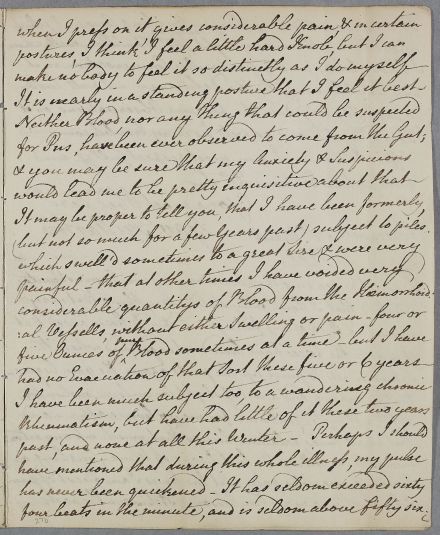 when I press on it gives considerable pain & in certain
postures, I think I feel a little hard Knob, but I can
make no body to feel it so distinctly as I do myself
It is nearly in a standing posture that I feel it best-
Neither Blood, nor any thing that could be suspected
for Pus, have been ever observed to come from the Gut;
& you may be sure that my Anxiety & Suspicions
would lead me to be pretty inquisitive about that-
It may be proper to tell you, that I have been formerly,
but not so much for a few Years past, subject to piles,
which swell'd sometimes to a great Size & were very
painful - that at other times I have voided very
considerable quantitys of Blood from the Hæmorhoid-
-al Vessells, without either Swelling or pain - four or
five Ounces of my Blood sometimes at a time - but I have
had no Evacuation of that Sort these five or 6 years -
I have been much subject too to a wandering chronic
Rheumatism, but have had little of it these two years
past, and none at all this Winter - Perhaps I should
have mentioned that during this whole illness my pulse
has never been quickened - It has seldom exceeded sixty
four beats in the minute, and is seldom above fifty six;